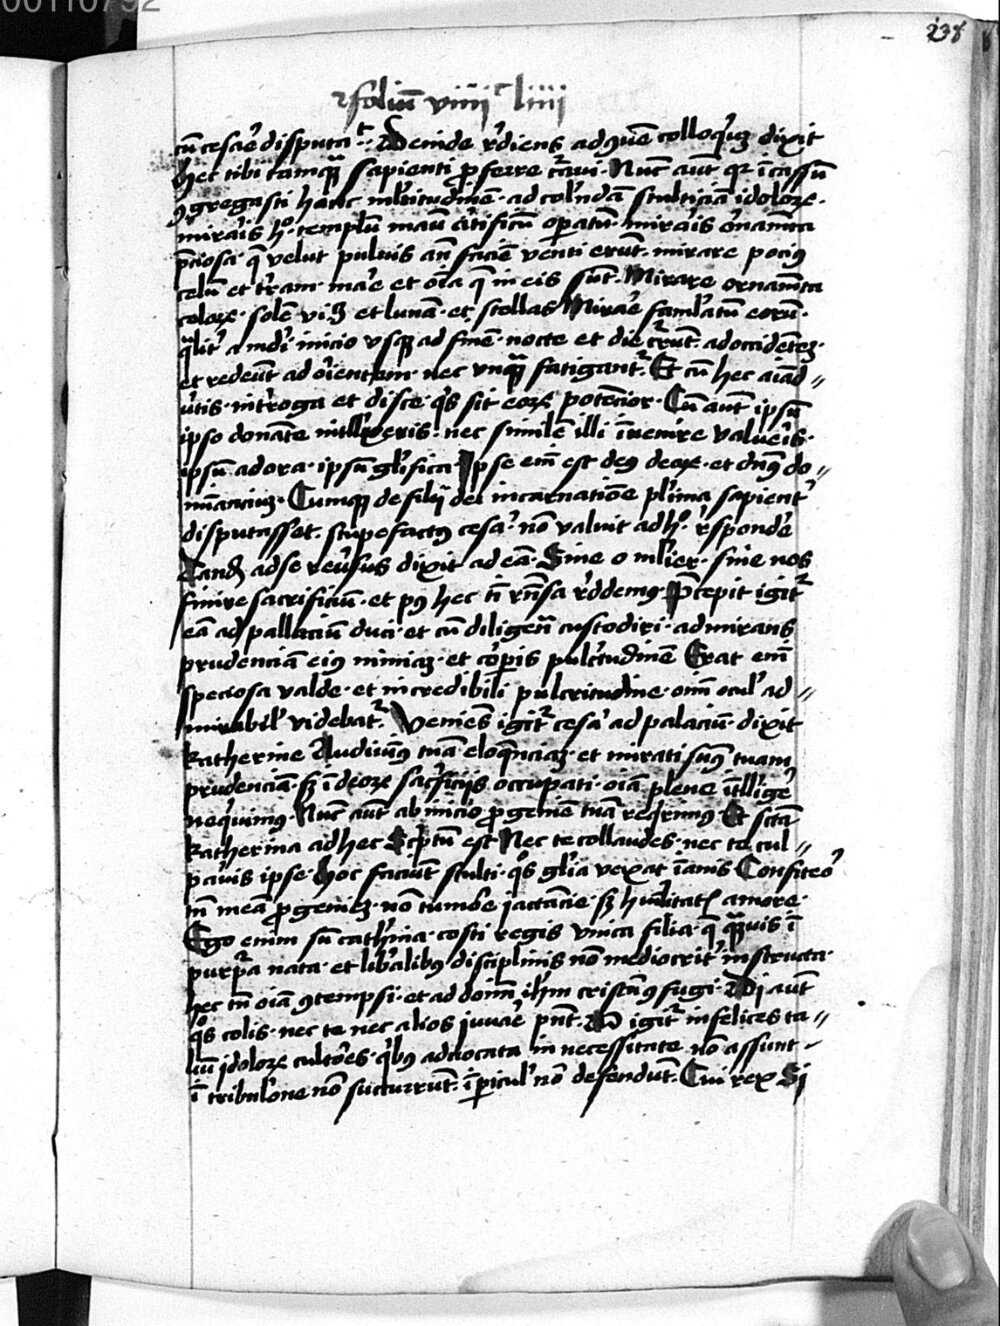 00110792
238
folium viiii liiii
cu cesare disputat. Deinde rediens ad quem colloquium dixit
hec tibi tamquam sapienti proferre curavi. Nunc aut quia incassum
congregasti hanc multitudinem ad colendam stulticiam idolorum.
miraris hoc templum manu artificum operatum. miraris ornamenta
preciosa que velut pulvis an faciem venti erunt. mirare pocius
celum et terram. mare et omnia que in eis sunt. Mirare ornamenta
celorum. solem videlicet et lunam. et stellas Mirare famulatum eorum.
qualiter a mundi inicio usque ad finem. nocte et die current. ad occidentem.
et redeunt ad orientem. nec unquam fatigantur. Et cum hec aiad-
vertis. interroga et disce. quis sit eorum potencior. Cum aut ipsum
ipso donante intellexeris. nec similem illi invenire valueris.
ipsum adora. ipsum glorifica Ipse enim est deus deorum. et dominus do-
minancium. Cumque de filii dei incarnatione plurima sapienter
disputasset. stupefactus cesar. non valuit ad hoc respondere
Tandem ad se reversus dixit ad eam. Sine o mulier. sine nos
finire sacrificium. et post hec tibi responsa reddemus Precepit igitur
eam ad pallacium duci. et cum diligentia custodiri. admirans
prudenciam eius nimiam. et corporis pulcritudinem Erat enim
speciosa valde. et incredibili pulcritudine. omnium oculis ad-
mirabilis videbatur. Veniens igitur cesar ad palacium. dixit
katherine Audivimus tuam eloquenciam. et mirati sumus tuam
prudenciam. sed in deorum sacrificiis occupati. omnia plene intelligere
nequivimus. Nunc aut ab inicio progeniem tuam requirimus. Et sancta
katherina ad hec Scriptum est Nec te collaudes. nec te cul-
pavis ipse. hoc faciunt stulti. quos gloria vexat inanis Confiteor
tamen meam progeniem. non tumore jactancie. sed humilitatis amore.
Ego enim sum catherina. costi regis unica filia. que quamvis in
purpura nata. et liberalibus disciplinis non mediocriter instructa.
hec tamen omnia contempsi. et ad dominum ihesum cristum confugi. Dii aut
quos colis. nec te nec alios juvare possunt. O igitur infelices ta-
lium idolorum cultores. quibus advocata in necessitate non assunt-
in tribulatione non succurrunt. in periculis non defendunt. Cui rex Si